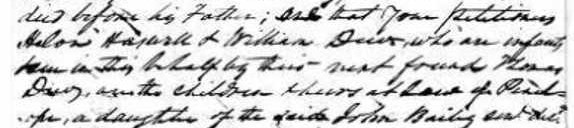 died before his Father; and that your petitioners
Helon Haswell & William Dew, who are infants
sue in this behalf by their next friend Thomas
Dew, are the children & heirs at Law of Penel-
ope, a daughter of the said John Bailey and